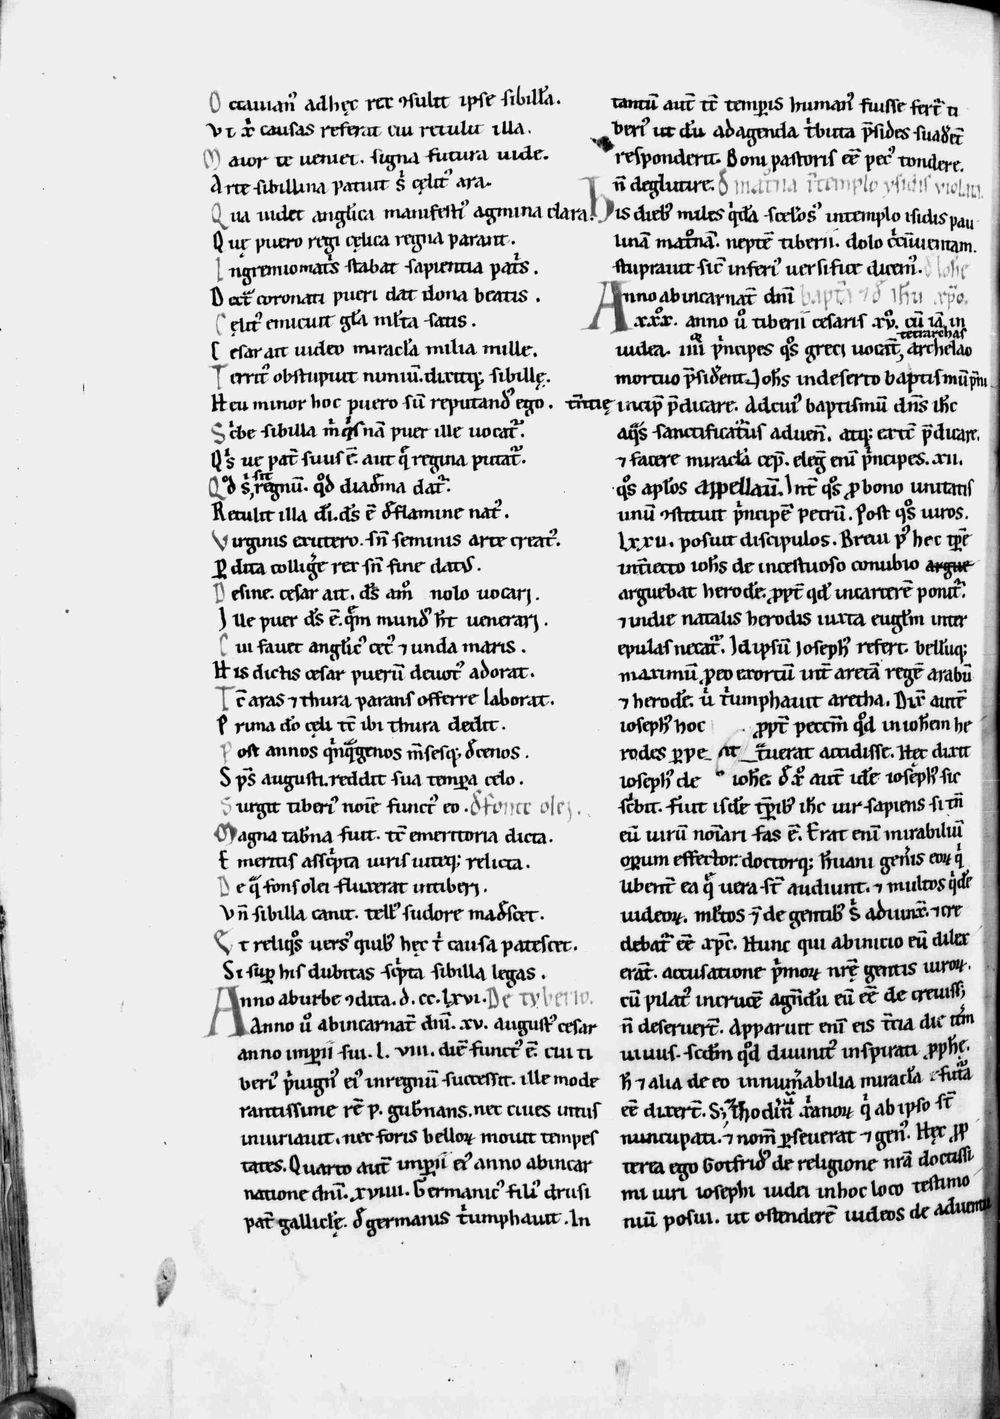 Octauian᷒ adhęc rex ꝯsulit ipse sibill̄a.
Vt xp̄i causas referat cui retulit illa.
Maior te ueniet. signa futura uide.
Arte sibillina patuit s; cęlit᷒ ara.
Qua uidet anglica manifesti᷒ agmina clara.
Quę puero regi cęlica regna parant.
Ingremio matⁱs stabat sapientia patⁱs.
Dext̄ coronati pueri dat dona beatis.
Cęlit᷒ emicuit gl̄a ml̄ta satis.
Cesar ait uideo miracl̄a milia mille.
Territ᷒ obstupuit nimiū. dixitq; sibillę.
Heu minor hoc puero sū reputand᷒ ego.
Scⁱbe sibilla m̄ qⁱsnā puer ille uocat᷒.
Qⁱs ue pat̄ suus ē. aut q̄ regina putat᷒.
Retulit illa dī. ds̄ ē de flamine nat᷒.
Virginis exutero. sn̄ seminis arte creat᷒.
ꝑdita collige rex sn̄ fine datis.
Desine. cesar ait. ds̄ am̊ nolo uocari.
Ille puer ds̄ ē. qm̄ mund᷒ ht̄ uenerari.
Cui fauet anglic᷒ cet᷒ ⁊ unda maris.
His dictis cesar puerū deuot᷒ adorat.
Tc̄ aras ⁊ thura parans offerre laborat.
Pruna do cęli tc̄ ibi thura dedit.
Post annos qⁱnqᵃgenos m̄sesq; ducenos.
Sps̄ augusti. reddit sua tempa celo.
Surgit tiberi᷒ noīe funct᷒ eo. de fonte olei.
Magna tab̄na fuit. tc̄ emeritoria dicta.
Emeritis asscⁱpta iuris uiteq; relicta.
De qᵃ fons olei fluxerat intiberi.
Vn̄ sibilla canit. tell᷒ sudore madescet.
Et reliqᵒs uers᷒ quib᷒ hęc tⁱ causa patescet.
Si suꝑ his dubitas scⁱpta sibilla legas.
Anno aburbe ꝯdita. d. cc. lxvi. De tyberio.
Anno ū abincarnat̄ dn̄i. xv. august᷒ cesar
anno imp̄ii sui. l. viii. diē funct᷒ ē. cui ti
beri᷒ pⁱuign᷒ ei᷒ inregnū successit. ille mode
rantissime rē p. gub̄nans. nec ciues intus
iniuriauit. nec foris bellorꝝ mouit tempes
tates. Quarto aut̄ imp̄ii ei᷒ anno abincar
natione dn̄i. xviiii. Germanic᷒ fili᷒ drusi
pat̄ galliclę. de germanis tⁱumphauit. In
tantū aut̄ tc̄ temꝑis human᷒ fuisse fert᷒ ti
beri᷒ ut cū adagenda tⁱbuta p̄sides suadēt
responderit. Boni pastoris eē pec᷒ tondere.
n̄ deglutire. De matⁿna in templo ysidis violata.
His dieb᷒ miles qⁱdā scelos᷒ intemplo isidis pau
linā matᵒnā. neptē tiberii. dolo cⁱcūuentam.
stuprauit sic̄ inferi᷒ uersifice dicem᷒. de Iohe
Anno abincarnat̄ dn̄i baptⁱ ⁊ de ihu xp̄o.
xxx. anno ū tiberii cesaris xv. cū iā in
iudea. iiii pⁱncipes qᵒs greci uocant tetrarchas, archelao
mortuo p̄sident. Iohs indeserto baptismū pn̄i
tn̄tię incip̄ p̄dicare. Adcui᷒ baptismū dn̄s ihc
aqᵃs sanctificatur᷒ aduen̄. atq; ex tc̄ p̄dicare.
⁊ facere miracl̄a cep̄. eleḡ enī pⁱncipes. xii.
qᵒs apl̄os appellaū. Int̄ qᵒs ꝓ bono unitatis
unū ꝯstituit pⁱncipē petrū. Post qᵒs uiros.
lxxii. posuit discipulos. Breui p᷒ hec tꝑe
int̄iecto iohs de incestuoso conubio argue
arguebat herodē. ꝓpt̄ qd̄ incarcerē ponit᷒.
⁊ indie natalis herodis iuxta eugl̄m inter
epulas necat᷒. Id ipsū Ioseph᷒ refert. bellūq;
maximū ꝓ eo exortū int̄ aretā regē arabū
⁊ herodē. ū tⁱumphauit aretha. Dix̄ autē
ioseph᷒ hoc ꝓpt̄ peccm̄ qd̄ in iohem he
rodes ꝑpe tⁱuerat accidisse. Hęc dixit
ioseph᷒ de iohe. de xp̄o aut̄ idē ioseph᷒ sic
scⁱbit. Fuit isdē tꝑib᷒ ihc uir sapiens si tn̄
eū uirū noīari fas ē. Erat enī mirabiliū
oꝑum effector. doctorq; hūani gen̄is eorꝝ qⁱ
libent̄ ea qᵉ uera st̄ audiunt. ⁊ multos qⁱdē
iudeorꝝ. ml̄tos ⁊ de gentib᷒ s; adiunx̄. ⁊ cre
debat᷒ eē xp̄c. Hunc qui abinicio eū dilex
erāt. accusatione pⁱmorꝝ nrę̄ gentis uirorꝝ.
cū pilat᷒ incrucē agn̄dū eū eē de creuiss;
n̄ deseruert̄. Apparuit enī eis tⁱcia die itm̄
uiuus. scdm̄ qd̄ diuinit᷒ inspirati ꝓph̄ę.
h̄ ⁊ alia de eo innumⁱabilia miracl̄a futᵃa
eē dixert̄. S; ⁊ hodiern̄ xp̄ianorꝝ qⁱ ab ipso st̄
nuncupati. ⁊ nom̄ ꝑseuerat ⁊ gen᷒. Hęc ꝓp
terea ego Gotfrid᷒ de religione nrā doctissi
mi uiri iosephi iudei inhoc loco testimo
niū posui. ut ostenderē iudeos de aduentu